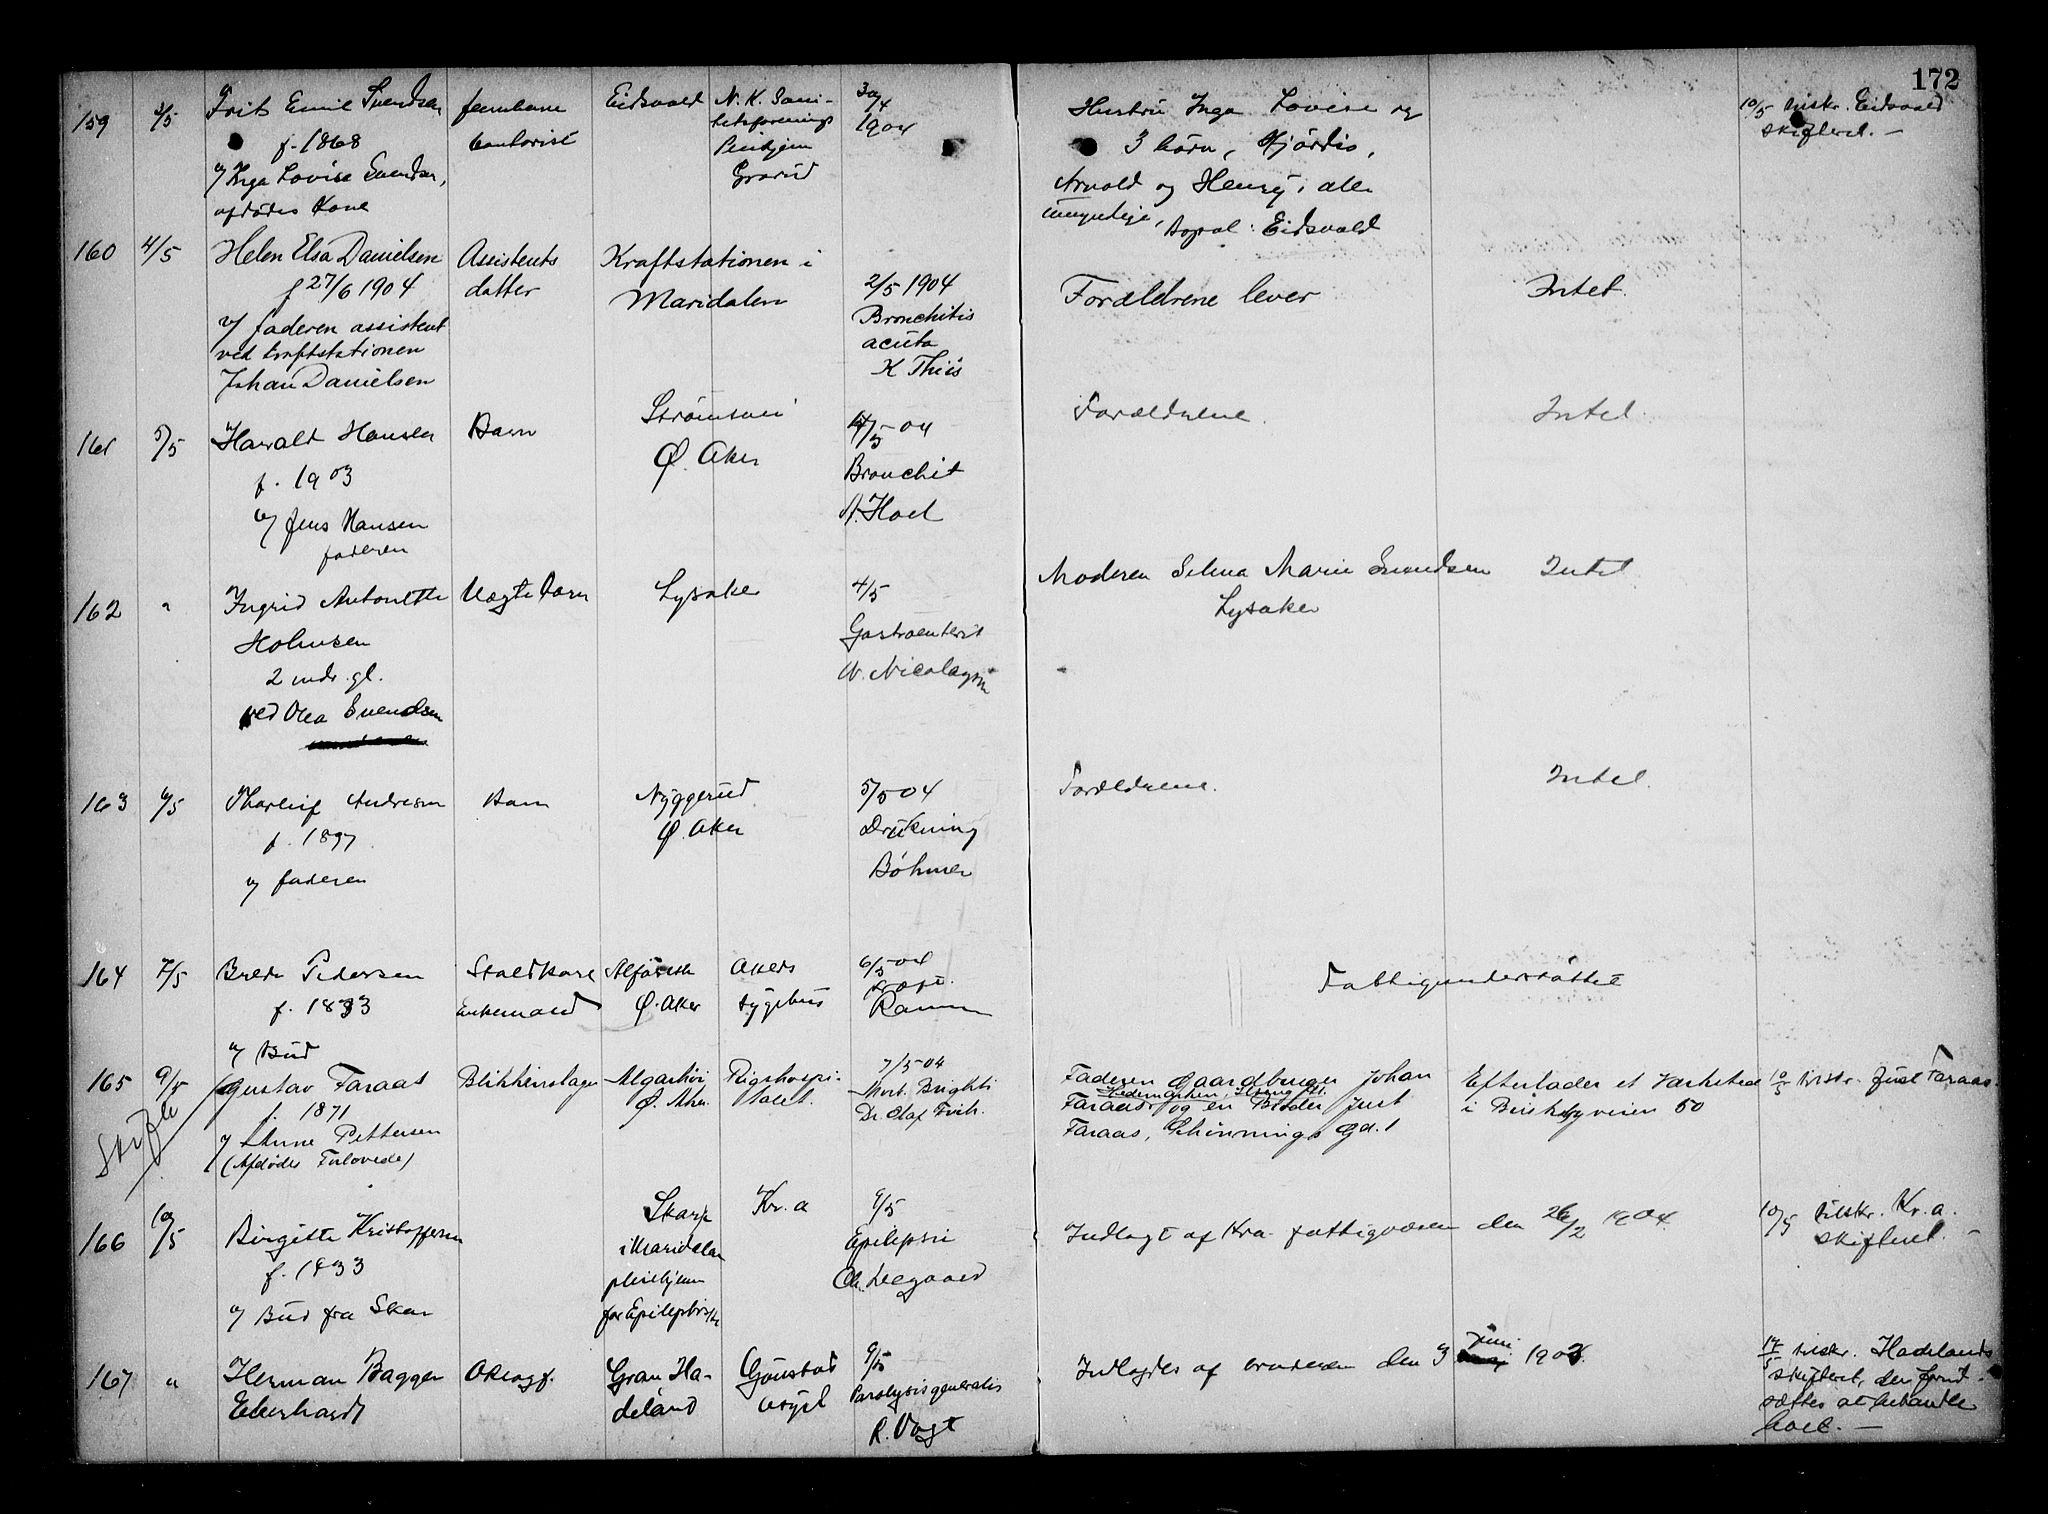 172
159
3/5
Frits Emil Svendsen
f. 1868
v/ Inga Lovise Svendsen,
afdødes Kone
Jernbane
kontorist
Eidsvold
N. K. Sani-
tetsforenings
Pleihjem
Grorud
30/4
1904
Hustru Inga Lovise og
3 børn, Hjördis,
Arvold og Henry, alle
umyndige, Bopæl: Eidsvold
10/5 tilskr. Eidsvold
skifteret. —
160
4/5
Helen Elsa Danielsen
f 27/6 1904
v/ faderen assistent
ved kraftstationen
Johan Danielsen
Assistents
datter
Kraftstationen i
Maridalen
2/5 1904
Bronchitis
acuta
K Thiis
Forældrene lever
Intet.
161
5/5
Harald Hansen
f. 1903
v/ Jens Hansen
faderen
Barn
Strømsvei
Ø. Aker
4/5 04
Bronchit
A. Hoel
Forældrene.
Intet.
162
"
Ingrid Antonette
Holmsen
2 mdr. gl.
ved Olea Svendsen
Uægte barn
Lysaker
4/5
Gastroenterit
V. Nicolaysen
Moderen Selma Marie Svendsen
Lysaker
Intet.
163
6/5
Thorleif Andresen
f. 1897
v/ faderen
Barn
Nyggerud
Ø. Aker
5/5 04
Drukning
Böhmer
Forældrene.
Intet.
164
7/5
Brede Pedersen
f. 1833
v/ Bud
Staldkarl
Enkemand
Alfaset
Ø. Aker
Akers
sygehus
6/5 04
Ramm
Fattigunderstøttet
165
9/5
Skifte
Gustav Faraas
f. 1871
v/ Anne Pettersen
(Afdødes Forlovede)
Blikkenslager
Ø. Aker.
Rigshospi-
talet.
7/5 04
Morb. Brighti
Dr. Olaf
Faderen Gaardbruger Johan
Hedemarken,
Faraas og en Broder Just
Faraas, Schinnings gd. 1
Efterlader et Værksted
i Biskopveien 50
10/5 tilskr. Just Faraas.
166
10/5
Birgitte Kristoffersen
f. 1833
v/ Bud fra Skar
Skar
i Maridalen
pleiehjem
for Epileptiske
Kr.a
9/5
Epilepsi
Chr. Leegaard
Indlagt af Kra. fattigvæsen den 26/2 1904.
10/5 tilskr. Kr.a.
skifteret. —
167
"
Herman Bagger
Eberhardt
Gran Ha-
deland
Gaustad
asyl
9/5
Paralysis generalis
R. Vogt
Indlagdes af broderen den 3 juni 1903.
14/5 tilskr. Hadelands
skifteret, den forud-
sættes at behandle
boet. —